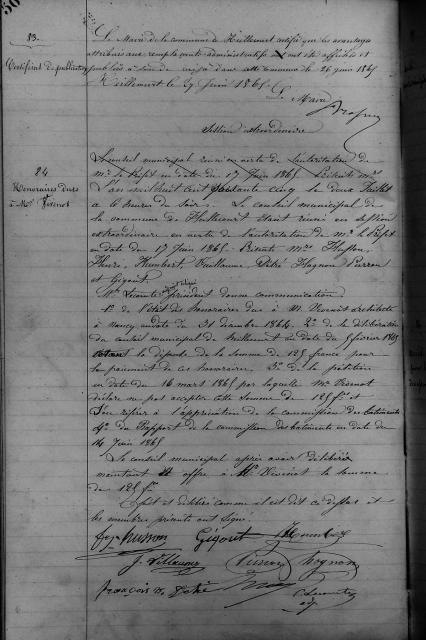 83.
Certificat de publication
Le Maire de la commune de Heillecourt certifie que les avantages
attribués aux compte administratifs ont été affichés et
publiés dans cette commune le 26 juin 1865
Heillecourt le 27 Juin 1865
Le Maire
Session extraordinaire
84
Honoraires dus
à Mr Vivenot
Le conseil municipal réuni en vertu de l'autorisation de
Mr le Préfet en date du 17 Juin 1865. Présents Mrs
L'an mil huit cent soixante cinq le deux Juillet
à 6 heures du soir. Le conseil municipal de
la commune de Heillecourt étant réuni en session
extraordinaire en vertu de l'autorisation de Mr le Préfet
en date du 17 Juin 1865. Présents Mrs Husson,
Humbert, Vuillaume, Dédé, Hognon, Pierron
et Gigout.
Mr président donne communication
1° de l'état des honoraires dus à M. Vivenot architecte
à Nancy en date du 31 décembre 1864. 2° de la délibération
du conseil municipal de Heillecourt en date du 5 février 1865
votant la dépense de la somme de 125 francs pour
le paiement de ces honoraires. 3° de la pétition
en date du 16 mars 1865 par laquelle Mr Vivenot
déclare ne pas accepter cette somme de 125 f et
s'en référer à l'appréciation de la commission des bâtiments
4° du Rapport de la commission des bâtiments en date du
14 Juin 1865
Le conseil municipal après avoir délibéré
maintenant offre à Mr Vivenot la somme
de 125 f.
Fait et délibéré comme il est dit ci dessus et
les membres présents ont signé.
Husson Gigout Humbert
J. Villaume Pierron Hognon
françois